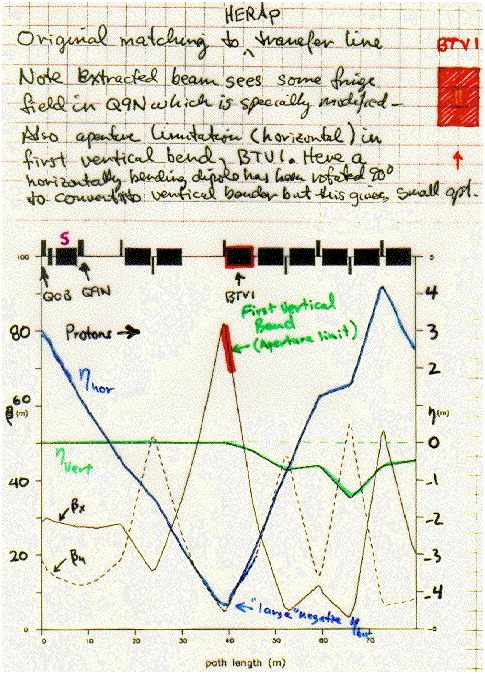 HERAp
Original matching to ^ transfer line
BTV1
Note Extracted beam sees some fringe
field in Q9N which is specially modified-
Also aperture limitation (horizontal) in
first vertical bend, BTV1. Here a
horizontally bending dipole has been rotated 90°
to convert into vertical bender but this gives small apt.
S
100
QOB Q9N
BTV1
4
80
Protons →
First Vertical
Bend
(Aperture limit)
3
2
η hor
1
60
(m)
η (m)
0
η vert
-1
40
-2
βx
20
-3
βy
-4
"large" negative η hor
0
-5
0 10 20 30 40 50 60 70
path length (m)